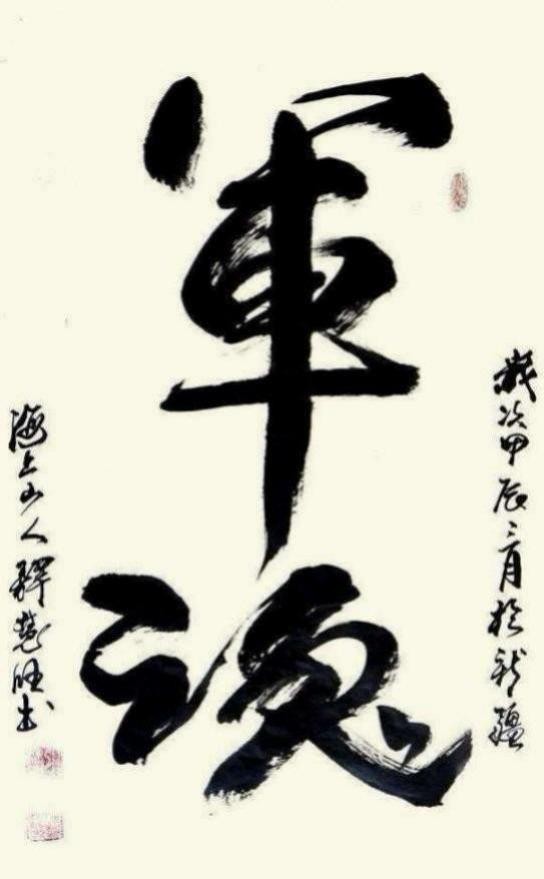 歲次甲辰三月於新疆
軍魂
海上山人釋慧书